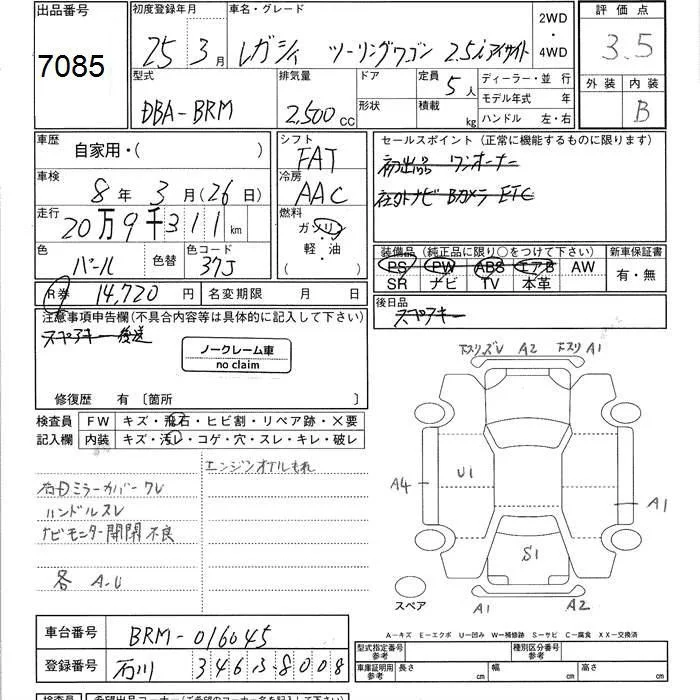 出品番号
7085
初度登録年月
25 3月
車名・グレード
レガシィ ツーリングワゴン 2.5i アイサイト
2WD
・
4WD
評価点
3.5
外装 内装
B
型式
DBA-BRM
排気量
2,500 CC
ドア
形状
定員 5人
積載 kg
ディーラー・並行
モデル年式 年
ハンドル 左・右
車歴
自家用・( )
車検
8年 3月(26日)
走行
20万9千311km
色
パール
色替
色コード
37J
シフト
FAT
冷房
AAC
燃料
ガソリン
軽・油
( )
R券 14,720円
名変期限 月 日
セールスポイント(正常に機能するものに限ります)
初出品 ワンオーナー
社外ナビ Bカメラ ETC
装備品(純正品に限り○をつけて下さい)
PS PW ABS エアB AW
SR ナビ TV 本革
新車保証書
有・無
後日品
スペアキー
注意事項申告欄(不具合内容等は具体的に記入して下さい)
スペアキー 後送
ノークレーム車
no claim
修復歴 有〔箇所 〕
検査員
記入欄
FW キズ・飛石・ヒビ割・リペア跡・×要
内装 キズ・汚れ・コゲ・穴・スレ・キレ・破レ
エンジンオイルもれ
右Dミラーカバーワレ
ハンドルスレ
ナビモニター開閉不良
各 A-U
下スリ ズレ A2 下スリ A1
A4
U1
A1
S1
スペア
A1 A2
A-キズ E-エクボ U-凹み W-補修跡 S-サビ C-腐食 XX-交換済
車台番号
BRM-016045
登録番号
石川 346 ほ 8008
型式指定番号
参考
種別区分番号
参考
車庫証明用
参考
長さ cm
幅 cm
高さ cm